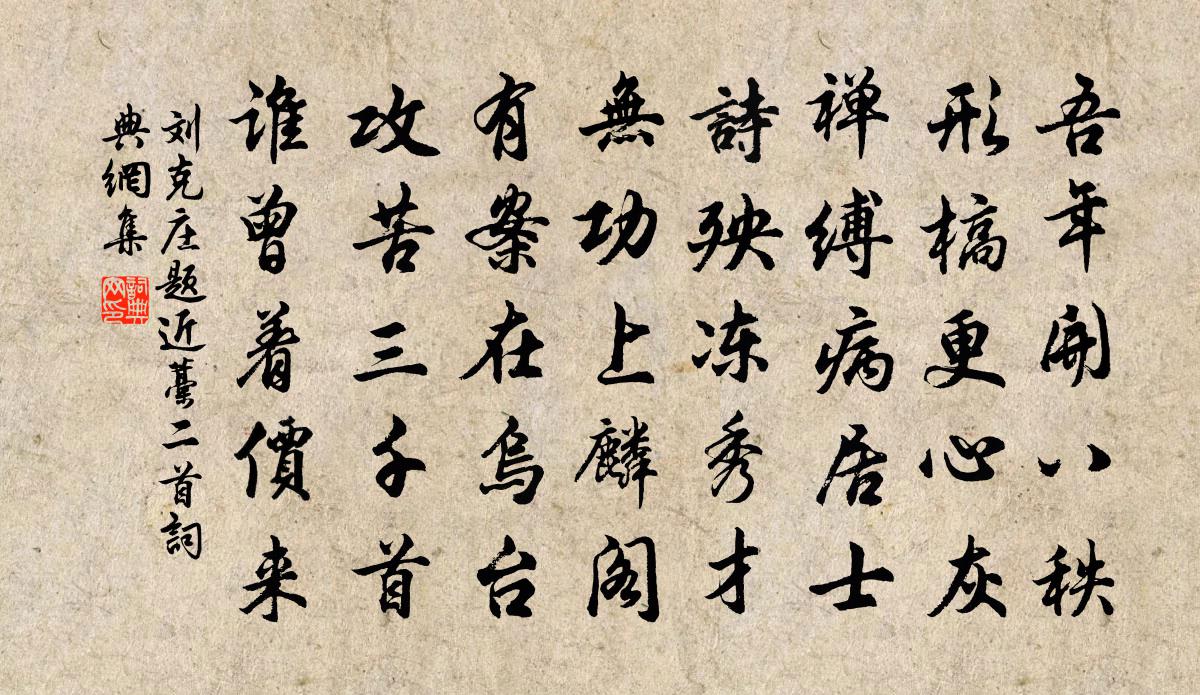 吾年開八秩
形槁更心灰
禅缚病居士
詩殃冻秀才
無功上麟阁
有案在烏台
攻苦三千首
谁曾着價来
刘克庄题近藁二首詞
典網集
詞典网印